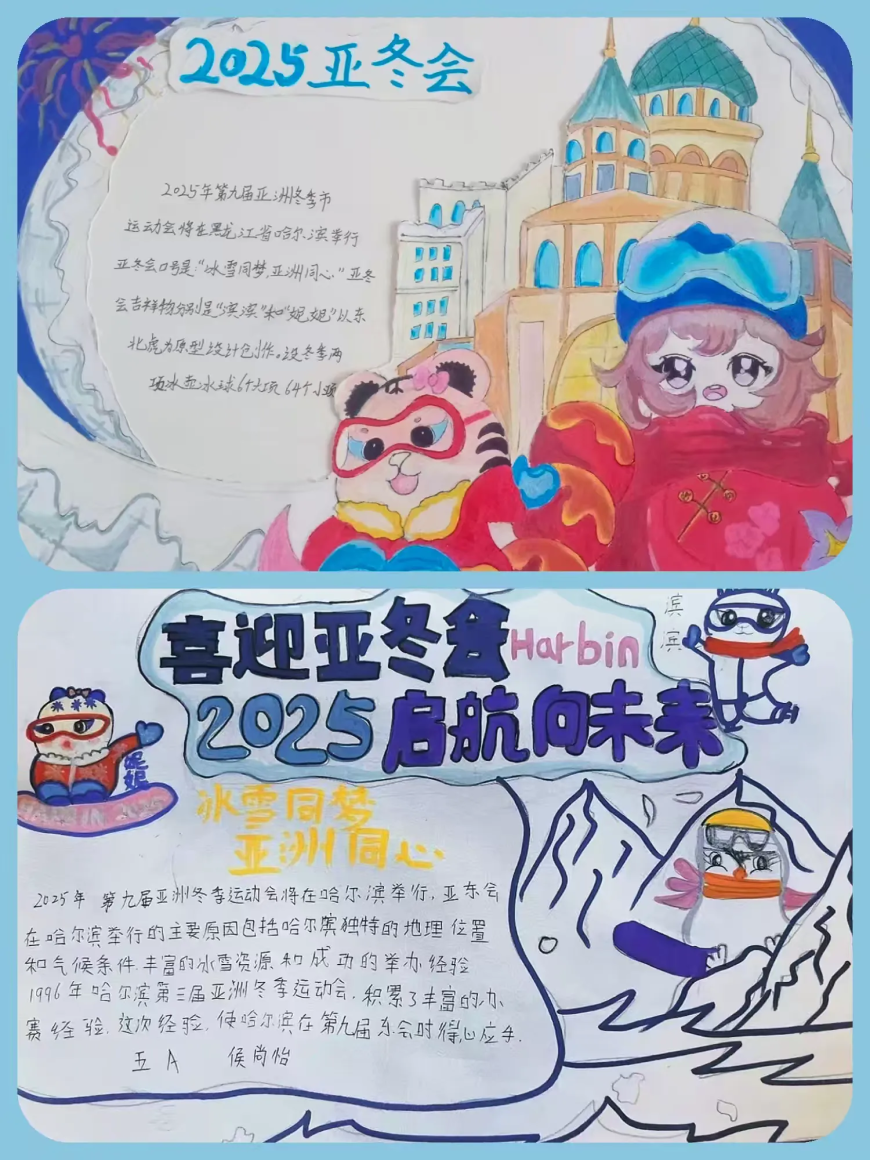 2025亚冬会
2025年第九届亚洲冬季节
运动会将在黑龙江省哈尔滨举行
亚冬会口号是:"冰雪同梦,亚洲同心."亚冬
会吉祥物分别是"滨滨"和"妮妮"以东
北虎为原型设计创作。设冬季两
项冰壶冰球6个大项 64个小项
喜迎亚冬会Harbin
2025启航向未来
滨滨
妮妮
HARBIN 2025
冰雪同梦
亚洲同心
2025年 第九届亚洲冬季运动会将在哈尔滨举行,亚东会
在哈尔滨举行的主要原因包括哈尔滨独特的地理位置
和气候条件.丰富的冰雪资源和成功的举办经验
1996年哈尔滨第三届亚洲冬季运动会,积累了丰富的办
赛经验.这次经验,使哈尔滨在第九届东会时得心应手.
五A 侯尚怡